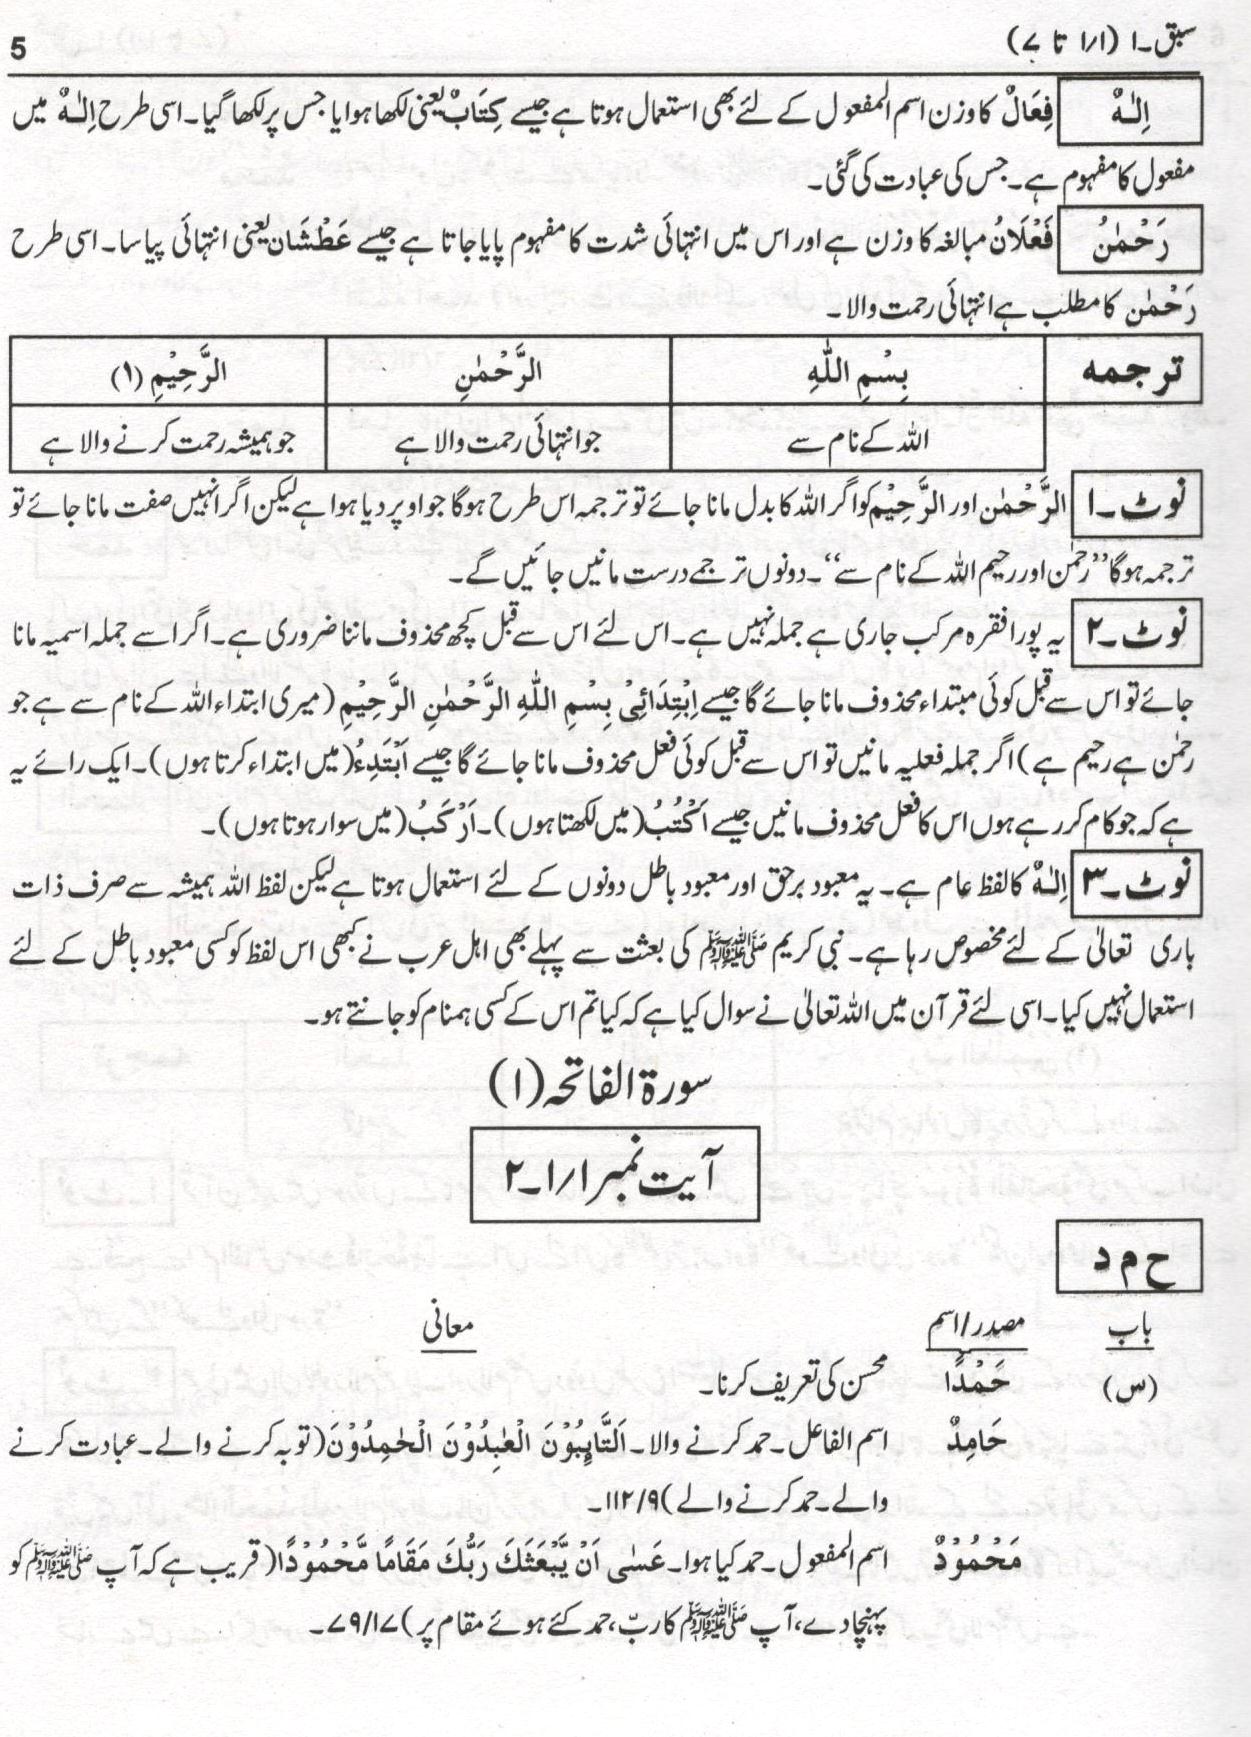 سبق۔۱ (۱/۱ تا ۷) 5
اِلٰـهٌ فِعَالٌ کا وزن اسم المفعول کے لئے بھی استعمال ہوتا ہے جیسے کِتَابٌ یعنی لکھا ہوا یا جس پر لکھا گیا۔ اسی طرح اِلٰـهٌ میں
مفعول کا مفہوم ہے۔ جس کی عبادت کی گئی۔
رَحْمٰنُ فَعْلَانُ مبالغہ کا وزن ہے اور اس میں انتہائی شدت کا مفہوم پایا جاتا ہے جیسے عَطْشَان یعنی انتہائی پیاسا۔ اسی طرح
رَحْمٰن کا مطلب ہے انتہائی رحمت والا۔
ترجمه بِسْمِ اللّٰهِ الرَّحْمٰنِ الرَّحِيْمِ (۱)
اللہ کے نام سے جو انتہائی رحمت والا ہے جو ہمیشہ رحمت کرنے والا ہے
نوٹ۔۱ الرَّحْمٰن اور الرَّحِيْم کو اگر اللہ کا بدل مانا جائے تو ترجمہ اس طرح ہوگا جو اوپر دیا ہوا ہے لیکن اگر انہیں صفت مانا جائے تو
ترجمہ ہوگا ’’رحمٰن اور رحیم اللہ کے نام سے‘‘۔ دونوں ترجمے درست مانیں جائیں گے۔
نوٹ۔۲ یہ پورا فقرہ مرکب جاری ہے جملہ نہیں ہے۔ اس لئے اس سے قبل کچھ محذوف ماننا ضروری ہے۔ اگر اسے جملہ اسمیہ مانا
جائے تو اس سے قبل کوئی مبتداء محذوف مانا جائے گا جیسے اِبْتِدَائِیْ بِسْمِ اللّٰهِ الرَّحْمٰنِ الرَّحِيْمِ (میری ابتداء اللہ کے نام سے ہے جو
رحمٰن ہے رحیم ہے) اگر جملہ فعلیہ مانیں تو اس سے قبل کوئی فعل محذوف مانا جائے گا جیسے اَبْتَدِءُ (میں ابتداء کرتا ہوں)۔ ایک رائے یہ
ہے کہ جو کام کر رہے ہوں اس کا فعل محذوف مانیں جیسے اَکْتُبُ (میں لکھتا ہوں)۔ اَرْکَبُ (میں سوار ہوتا ہوں)۔
نوٹ۔۳ اِلٰـهٌ کا لفظ عام ہے۔ یہ معبود برحق اور معبود باطل دونوں کے لئے استعمال ہوتا ہے لیکن لفظ اللہ ہمیشہ سے صرف ذات
باری تعالیٰ کے لئے مخصوص رہا ہے۔ نبی کریم ﷺ کی بعثت سے پہلے بھی اہل عرب نے کبھی اس لفظ کو کسی معبود باطل کے لئے
استعمال نہیں کیا۔ اسی لئے قرآن میں اللہ تعالیٰ نے سوال کیا ہے کہ کیا تم اس کے کسی ہمنام کو جانتے ہو۔
سورة الفاتحه (۱)
آیت نمبر ۱/۱۔۲
ح م د
باب مصدر/اسم معانی
(س) حَمْدًا محسن کی تعریف کرنا۔
حَامِدٌ اسم الفاعل۔ حمد کرنے والا۔ اَلتَّآئِبُوْنَ الْعٰبِدُوْنَ الْحٰمِدُوْنَ (توبہ کرنے والے۔ عبادت کرنے
والے۔ حمد کرنے والے) ۱۱۲/۹۔
مَحْمُوْدٌ اسم المفعول۔ حمد کیا ہوا۔ عَسٰی اَنْ یَّبْعَثَكَ رَبُّكَ مَقَامًا مَّحْمُوْدًا (قریب ہے کہ آپ ﷺ کو
پہنچا دے، آپ ﷺ کا ربّ، حمد کئے ہوئے مقام پر) ۷۹/۱۷۔